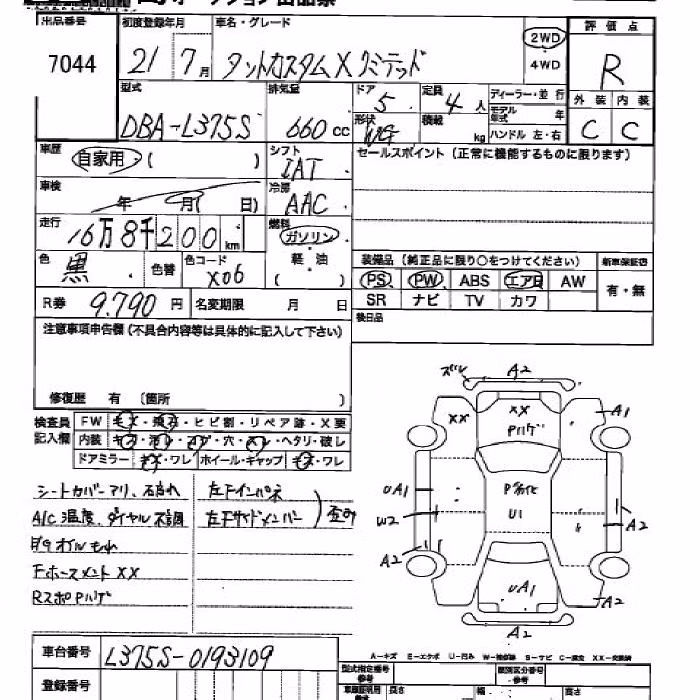 出品番号 初度登録年月 車名・グレード 評価点
7044 21 7月 タントカスタムXリミテッド 2WD 4WD R
型式 排気量 ドア 定員 ディーラー・並行 外装 内装
DBA-L375S 660cc 5 4人 モデル年式 年 C C
形状 積載 kg ハンドル 左・右
車歴 自家用・( ) シフト IAT セールスポイント(正常に機能するものに限ります)
車検 年 月( 日) 冷房 AAC
走行 16万8千200km 燃料 ガソリン
軽・油
( )
色 黒 色替 色コード X06 装備品(純正品に限り○をつけてください) 新車保証書
PS PW ABS エアB AW 有・無
R券 9.790円 名変期限 月 日 SR ナビ TV カワ
後日品
注意事項申告欄(不具合内容等は具体的に記入して下さい)
修復歴 有 (箇所 )
検査員 FW キズ・飛石・ヒビ割・リペア跡・X要
記入欄 内装 ・穴・ ・ヘタリ・破レ
ドアミラー キズ・ワレ ホイール・キャップ キズ・ワレ
シートカバーアリ、 左Fインパネ
A/C温度、ダイヤル不調 左Fサイドメンバー
オイルもれ
Fホースメント XX
RスポPハゲ
A2
XX XX A1
Pハゲ
UA1 P劣化
W2 U1 A2
A2
UA1
A2
A2
車台番号 L375S-0193109
A-キズ E-エクボ U-凹み
登録番号 型式指定番号 類別区分番号
長さ 幅 高さ